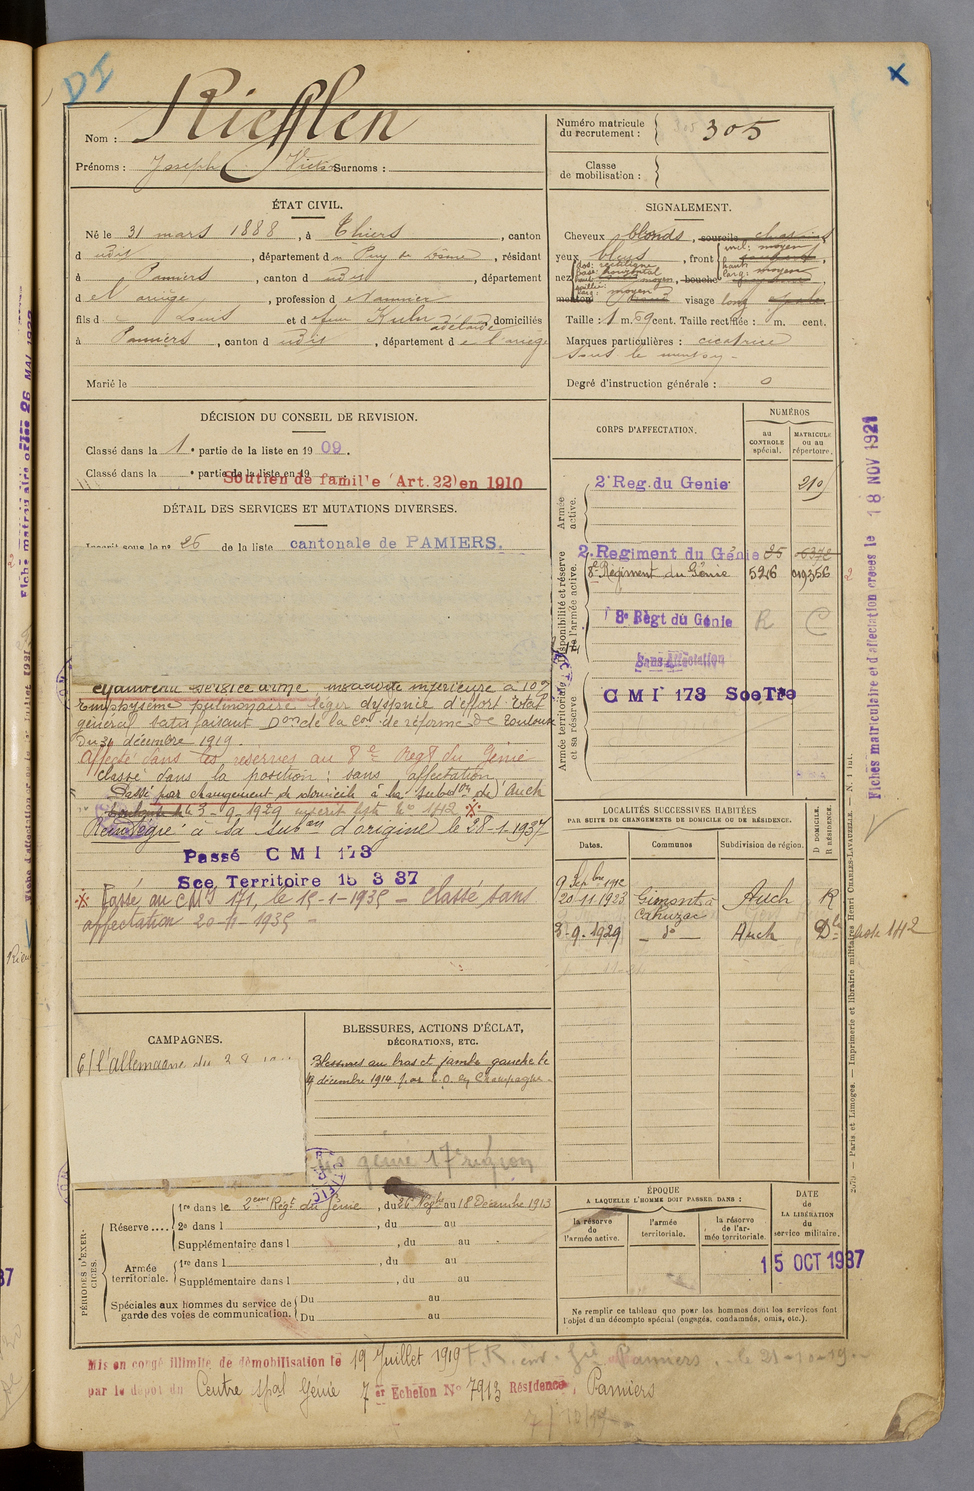 DI
X
Nom : Riefflen
Prénoms : Joseph Victor Surnoms :
Numéro matricule du recrutement : 305
Classe de mobilisation :
ÉTAT CIVIL.
Né le 31 mars 1888, à Thiers, canton
d udit, département du Puy de Dôme, résidant
à Pamiers, canton d udit, département
d e l'ariège, profession de
fils d e Louis et d e feue Kuhn adélaïde domiciliés
à Pamiers, canton d udit, département d e l'ariège
Marié le
SIGNALEMENT.
Cheveux blonds, sourcils
yeux bleus, front incl: moyen
haut:
larg: moyen
nez dos: rectiligne
base: horizontal
haut: moyen, bouche
saillie:
larg: moyen
menton visage long
Taille : 1 m. 69 cent. Taille rectifiée : m. cent.
Marques particulières : cicatrice
sous le menton
Degré d'instruction générale : 0
DÉCISION DU CONSEIL DE REVISION.
Classé dans la 1e partie de la liste en 1909.
Classé dans la e partie de la liste en 19
Soutien de famille (Art. 22) en 1910
DÉTAIL DES SERVICES ET MUTATIONS DIVERSES.
Inscrit sous le no 26 de la liste cantonale de PAMIERS.
service armé invalidité inférieure à 10%
Emphysème pulmonaire léger dyspnée d'effort Etat
général satisfaisant Don de la Con de réforme de Toulouse
Du 30 décembre 1919.
Affecté dans les réserves au 8e Regt du Génie
Classé dans la position : sans affectation
Passé par changement de domicile à la Subdon de Auch
le 3-9-1929 inscrit liste No 142
Réintégré à sa Subon d'origine le 28-1-1937
Passé CMI 173
Sce Territoire 15 3 37
Passé au CMI 171, le 15-1-1935 - Classé sans
affectation 20-11-1935
CORPS D'AFFECTATION.
NUMÉROS
au CONTROLE spécial.
MATRICULE ou au répertoire.
Armée active.
2e Reg. du Genie 210
Disponibilité et réserve de l'armée active.
2. Regiment du Génie 25 6372
8e Regiment du Génie 526 019356
8e Règt du Génie R C
Sans Affectation
Armée territoriale et sa réserve
CMI 173 Sce Tre
LOCALITÉS SUCCESSIVES HABITÉES
PAR SUITE DE CHANGEMENTS DE DOMICILE OU DE RÉSIDENCE.
Dates. Communes Subdivision de région. D DOMICILE. R RÉSIDENCE.
9 Sepbre 1912
20-11-1923 Gimont à Cahuzac Auch R
3-9-1929 do Auch Dle liste 142
CAMPAGNES.
C/ l'allemagne du
BLESSURES, ACTIONS D'ÉCLAT,
DÉCORATIONS, ETC.
Blessures au bras et jambe gauche le
décembre 1914 par e.o. en Champagne
génie 17e région
PÉRIODES D'EXERCICES.
Réserve.... 1re dans le 2eme Régt du Génie, du 26 au 18 Décembre 1913
2e dans l , du au
Supplémentaire dans l , du au
Armée territoriale. 1re dans l , du au
Supplémentaire dans l , du au
Spéciales aux hommes du service de garde des voies de communication. Du au
Du au
ÉPOQUE
A LAQUELLE L'HOMME DOIT PASSER DANS :
la réserve de l'armée active.
l'armée territoriale.
la réserve de l'armée territoriale.
DATE de LA LIBÉRATION du service militaire.
15 OCT 1937
Ne remplir ce tableau que pour les hommes dont les services font
l'objet d'un décompte spécial (engagés, condamnés, omis, etc.).
Mis en congé illimité de démobilisation le 19 Juillet 1919
Pamiers. le 21-10-19.
par le dépôt du Centre Génie 7 er Echelon No 7913 Résidence, Pamiers
Fiches matriculaire et d'affectation créées le 18 NOV 1921
Paris et Limoges. — Imprimerie et librairie militaires Henri CHARLES-LAVAUZELLE.